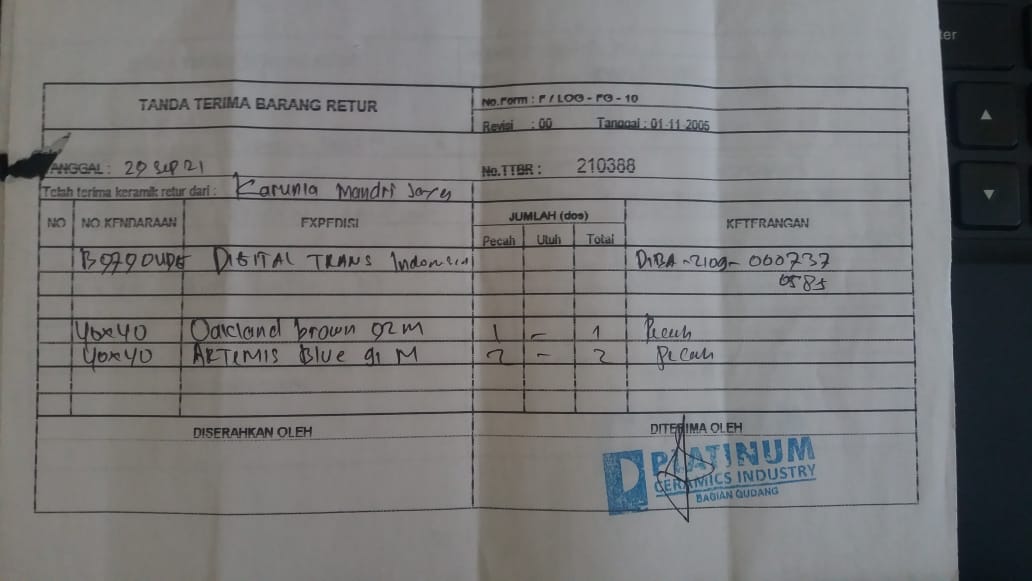 ter
TANDA TERIMA BARANG RETUR
No.Form : F / LOG - FG - 10
Revisi : 00 Tanggal : 01-11-2005
TANGGAL : 29 Sep 21
No.TTBR : 210388
Telah terima keramik retur dari : Karunia Mandiri Jaya
NO NO KENDARAAN EXPEDISI JUMLAH (dos) KETERANGAN
Pecah Utuh Total
DIGITAL TRANS Indonesia DIBA-2109-000737
0585
40x40 Oakland brown 02 M 1 - 1 Pecah
40x40 ARTEMIS Blue 91 M 2 - 2 Pecah
DISERAHKAN OLEH DITERIMA OLEH
PLATINUM
CERAMICS INDUSTRY
BAGIAN GUDANG